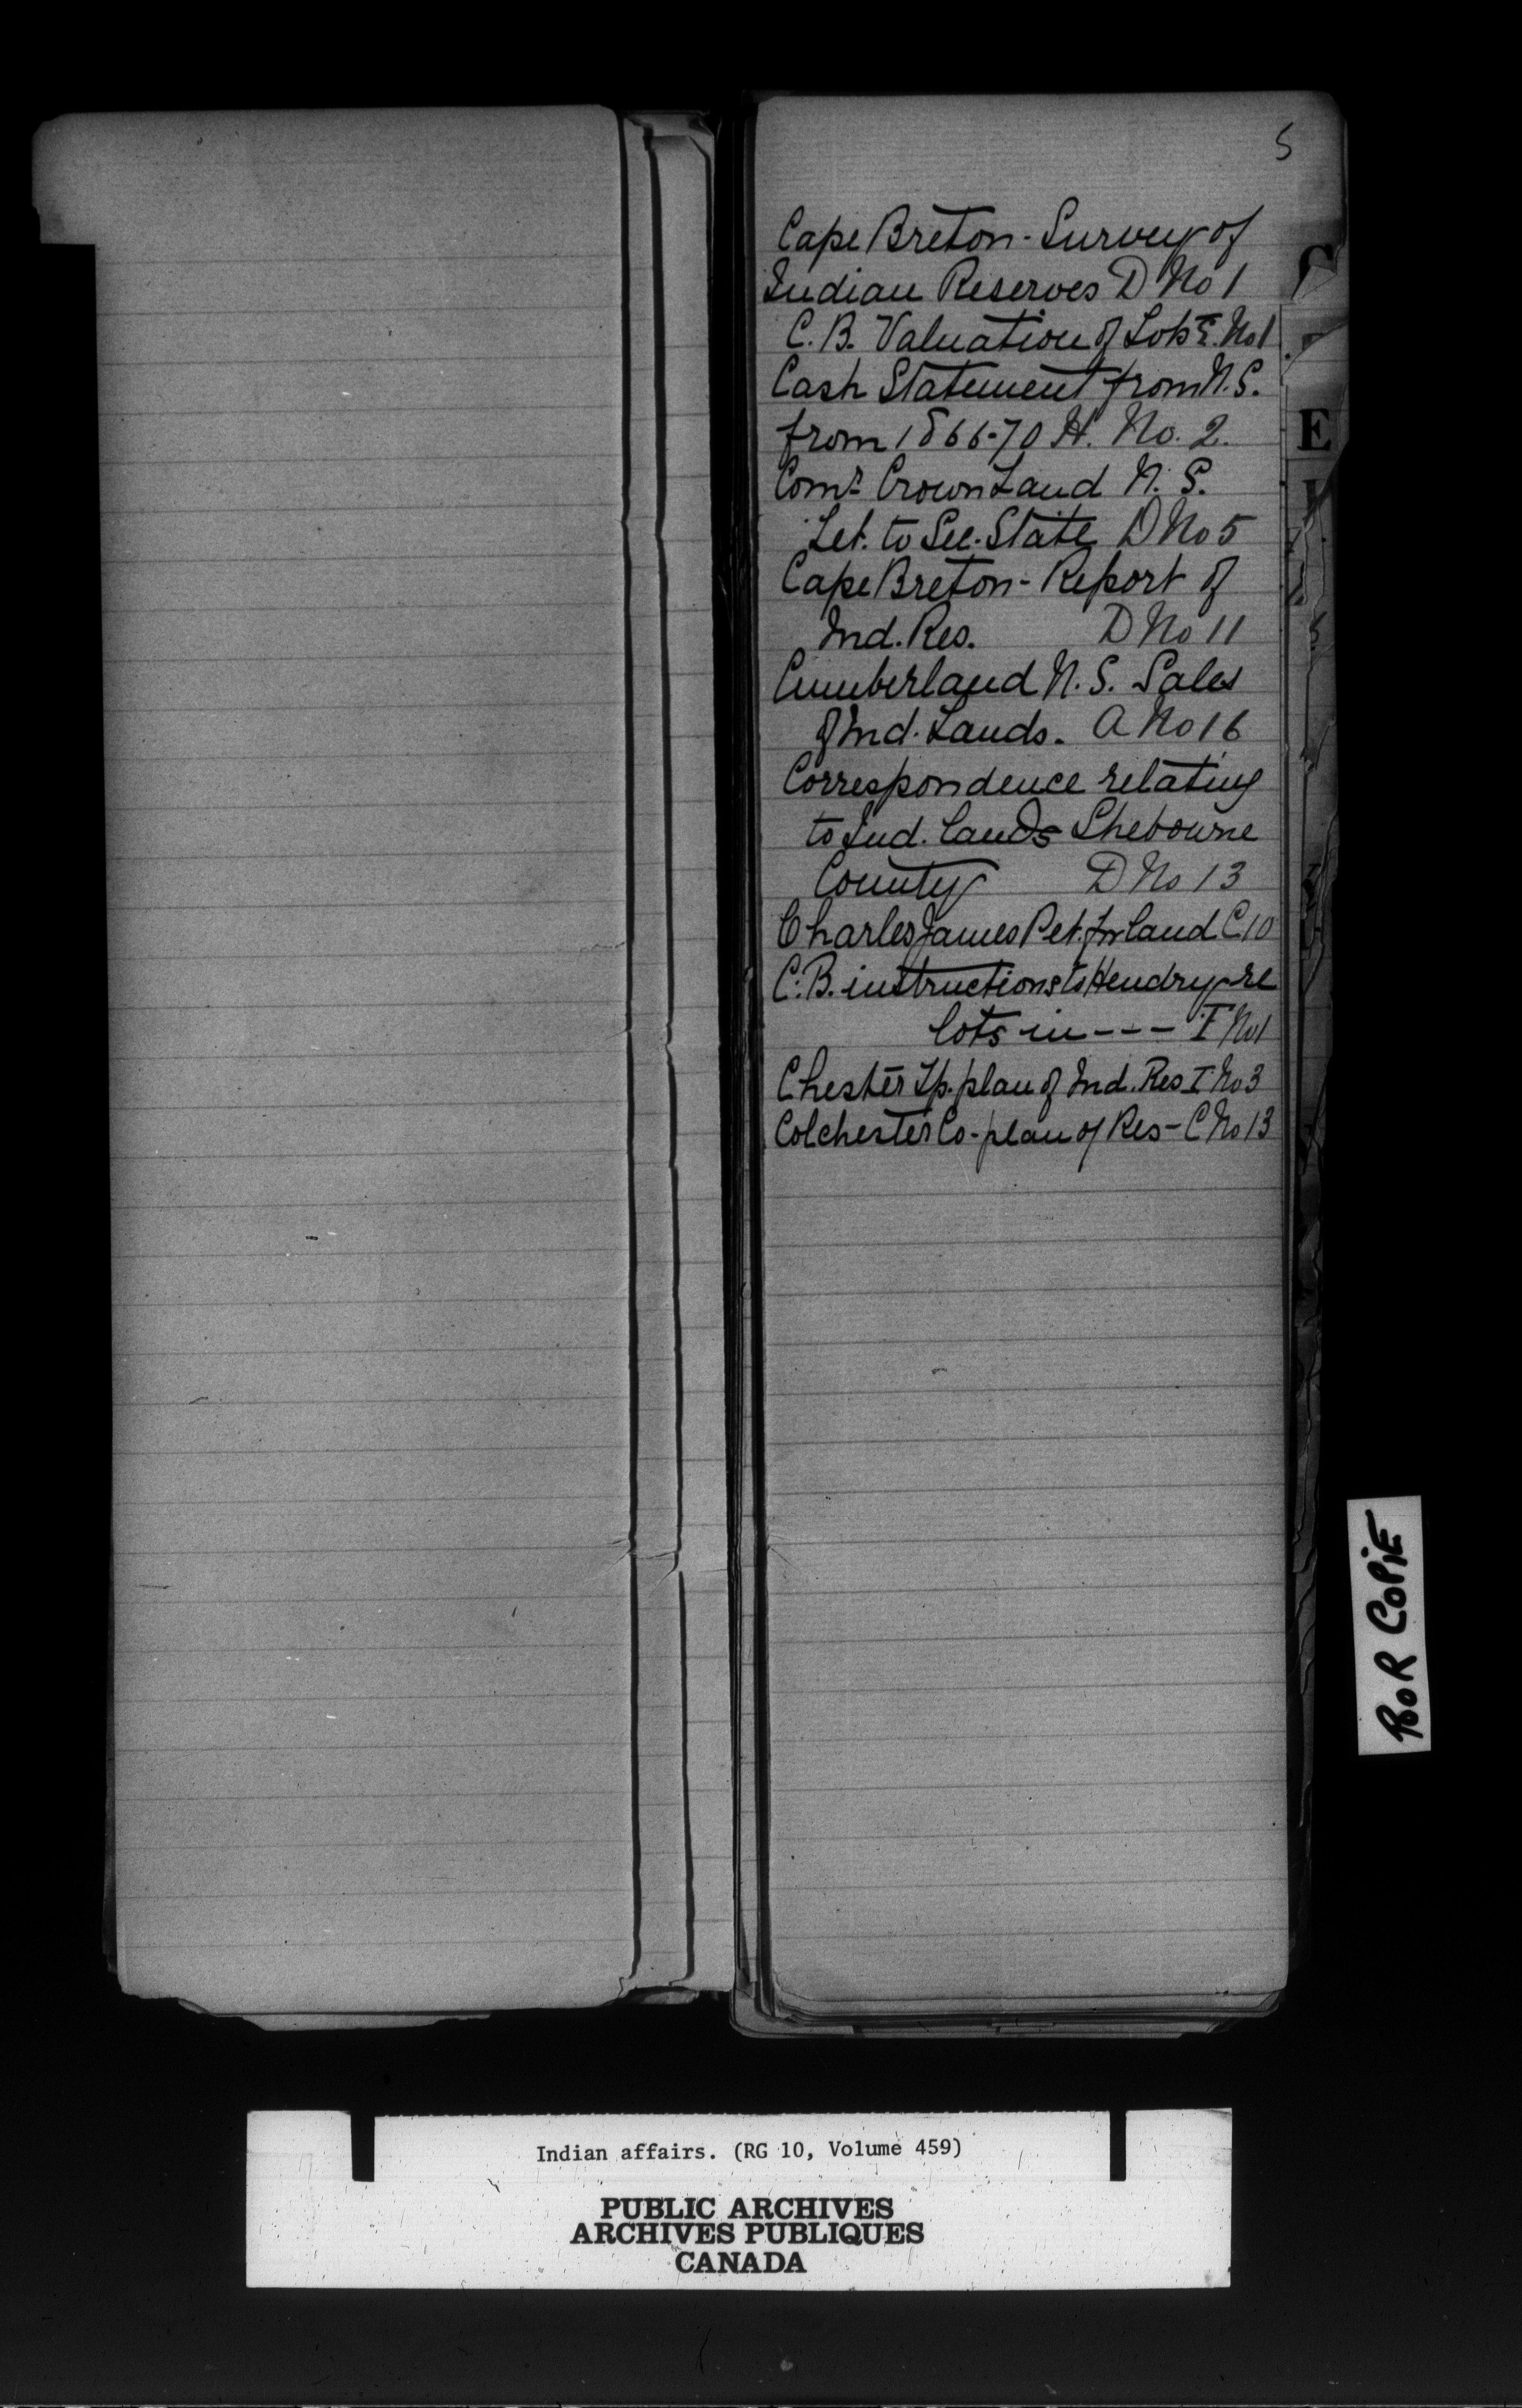 5
Cape Breton - Survey of
Indian Reserves D No 1
C. B. Valuation of Lots E. No 1
Cash Statement from N. S.
from 1866-70 H. No. 2.
Comr. Crown Land N. S.
Let. to Sec. State D No 5
Cape Breton - Report of
Ind. Res. D No 11
Cumberland N. S. Sales
of Ind. Lands. A No 16
Correspondence relating
to Ind. lands Shebourne
County D No 13
Charles James Pet. for land C 10
C. B. instructions to Hendry re
lots in --- I No 1
Chester Tp. plan of Ind. Res I No 3
Colchester Co - plan of Res - C No 13
C
E
POOR COPIE
Indian affairs. (RG 10, Volume 459)
PUBLIC ARCHIVES
ARCHIVES PUBLIQUES
CANADA